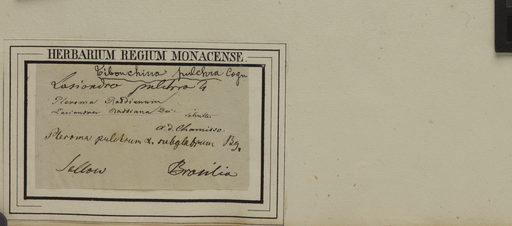 HERBARIUM REGIUM MONACENSE.
Tibouchina pulchra Cogn
Lasiandra pulchra
Pleroma Raddianum
Lasiandra Raddiana
ad. Chamisso.
Pleroma pulchrum α. subglabrum Bg.
Sellow Brasilia